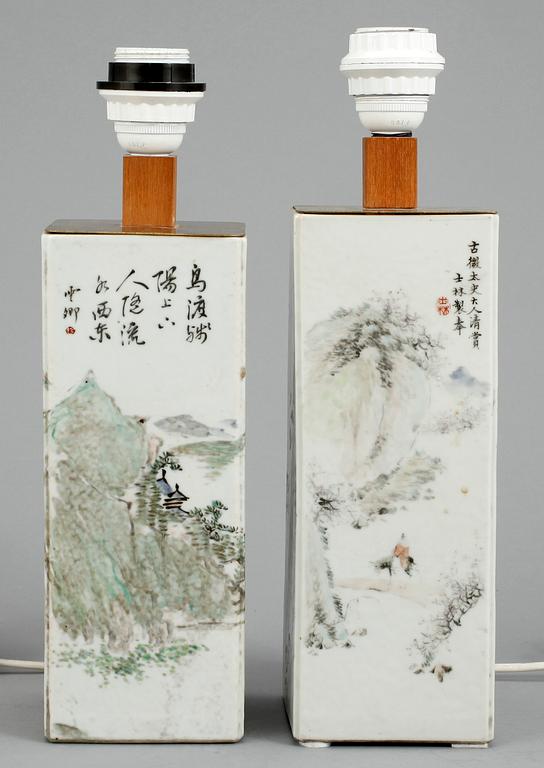 鸟渡斜
陽上六
人隱流
水西東
古徽太史大人清賞
士林製奉
士林